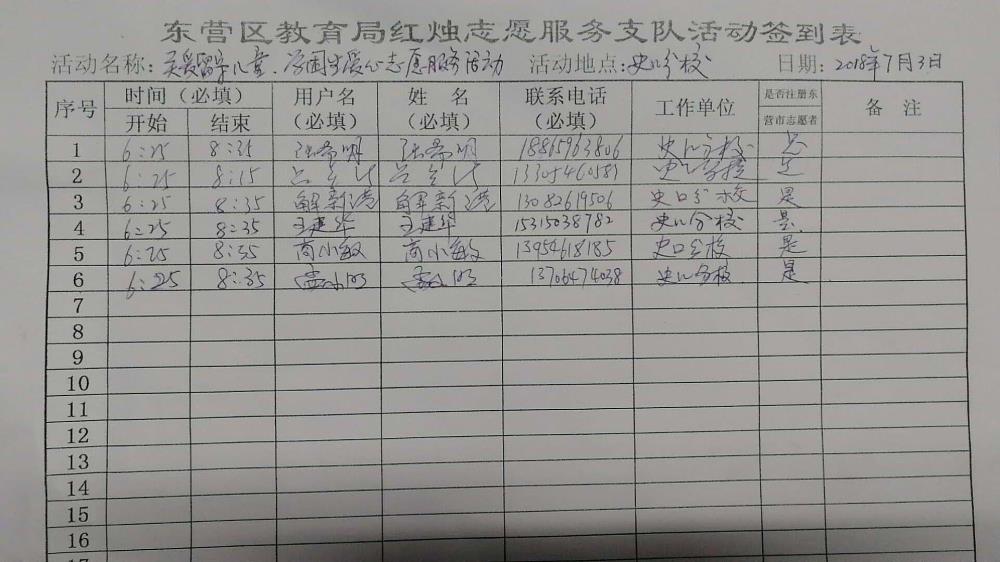 东营区教育局红烛志愿服务支队活动签到表
活动名称：关爱留守儿童、学困生爱心志愿服务活动 活动地点：史口分校 日期：2018年7月3日
序号 时间（必填） 用户名（必填） 姓 名（必填） 联系电话（必填） 工作单位 是否注册东营市志愿者 备 注
开始 结束
1 6:25 8:35 18865963806 史口分校 是
2 6:25 8:15 13305460589 史口分校 是
3 6:25 8:35 解新港 解新港 13082619506 史口分校 是
4 6:25 8:35 王建华 王建华 15315038782 史口分校 是
5 6:25 8:35 商小敏 商小敏 13954618185 史口分校 是
6 6:25 8:35 13706474038 史口分校 是
7
8
9
10
11
12
13
14
15
16
17